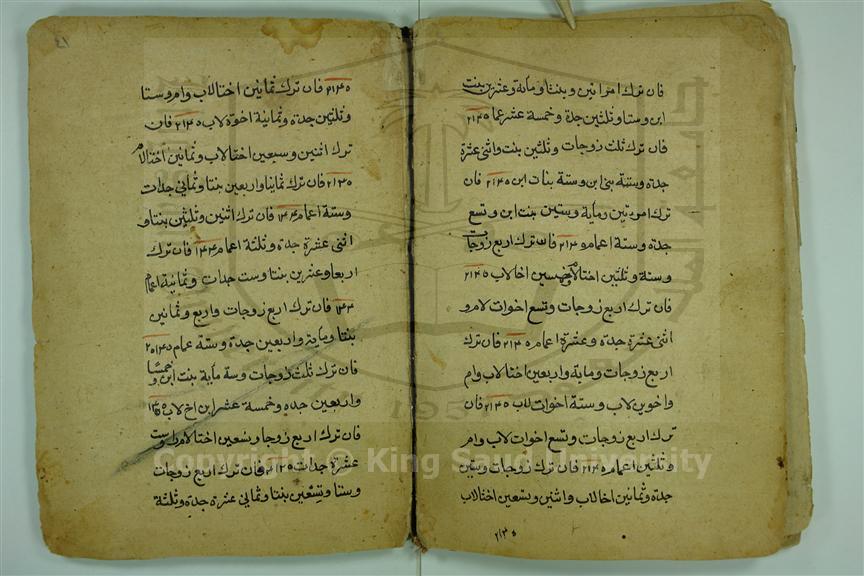 فان ترك امراتين وبنتا وماية وعشرين بنت
ابن وستا وثلثين جدة وخمسة عشر عما ٢١٣٥
فان ترك ثلث زوجات وثلثين بنت واثنى عشرة
جدة وستة بنى ابن وستة بنات ابن ٢١٣٥ فان
ترك امرءتين وماية وستين بنت ابن وتسع
جدة وستة اعمام و ٢١٣٥ فان ترك اربع زوجات
وستة وثلثين اختا لام وخمسين اخا لاب ٢١٣٥
فان ترك اربع زوجات وتسع اخوات لام و
اثنى عشرة جدة وعشرة اعمام ٢١٣٥ فان ترك
اربع زوجات وماية واربعين اختا لاب وام
واخوين لاب وستة اخوات لاب ٢١٣٥ فان
ترك اربع زوجات وتسع اخوات لاب وام
وثلثين اعمام ٢١٣٥ فان ترك زوجات وستين
جدة وثمانين اخا لاب واثنين وتسعين اختا لاب
٢١٣٥
٤١
٢١٣٥ فان ترك ثمانين اختا لاب وام وستا
وثلثين جدة وثمانية اخوة لاب ٢١٣٥ فان
ترك اثنين وسبعين اختا لاب وثمانين اختا لام
٢١٣٥ فان ترك ثمانيا واربعين بنتا وثماني جدات
وستة اعمام ١٤٤ فان ترك اثنين وثلثين بنتا و
اثنى عشرة جدة وثلثة اعمام ١٤٤ فان ترك
اربعا وعشرين بنتا وست جدات وثمانية اعمام
١٤٤ فان ترك اربع زوجات واربع وثمانين
بنتا وماية واربعين جدة وستة عمام ٢٥١٣٥
فان ترك ثلث زوجات وستة ماية بنت ابن وخمسا
واربعين جده وخمسة عشر ابن اخ لاب
فان ترك اربع زوجا وتسعين اختا لام وست
عشرة جدات ٢١٣٥ فان ترك اربع زوجات
وستا وتسعين بنتا وثماني عشرة جدة وثلثة
Copyright © King Saud University
195